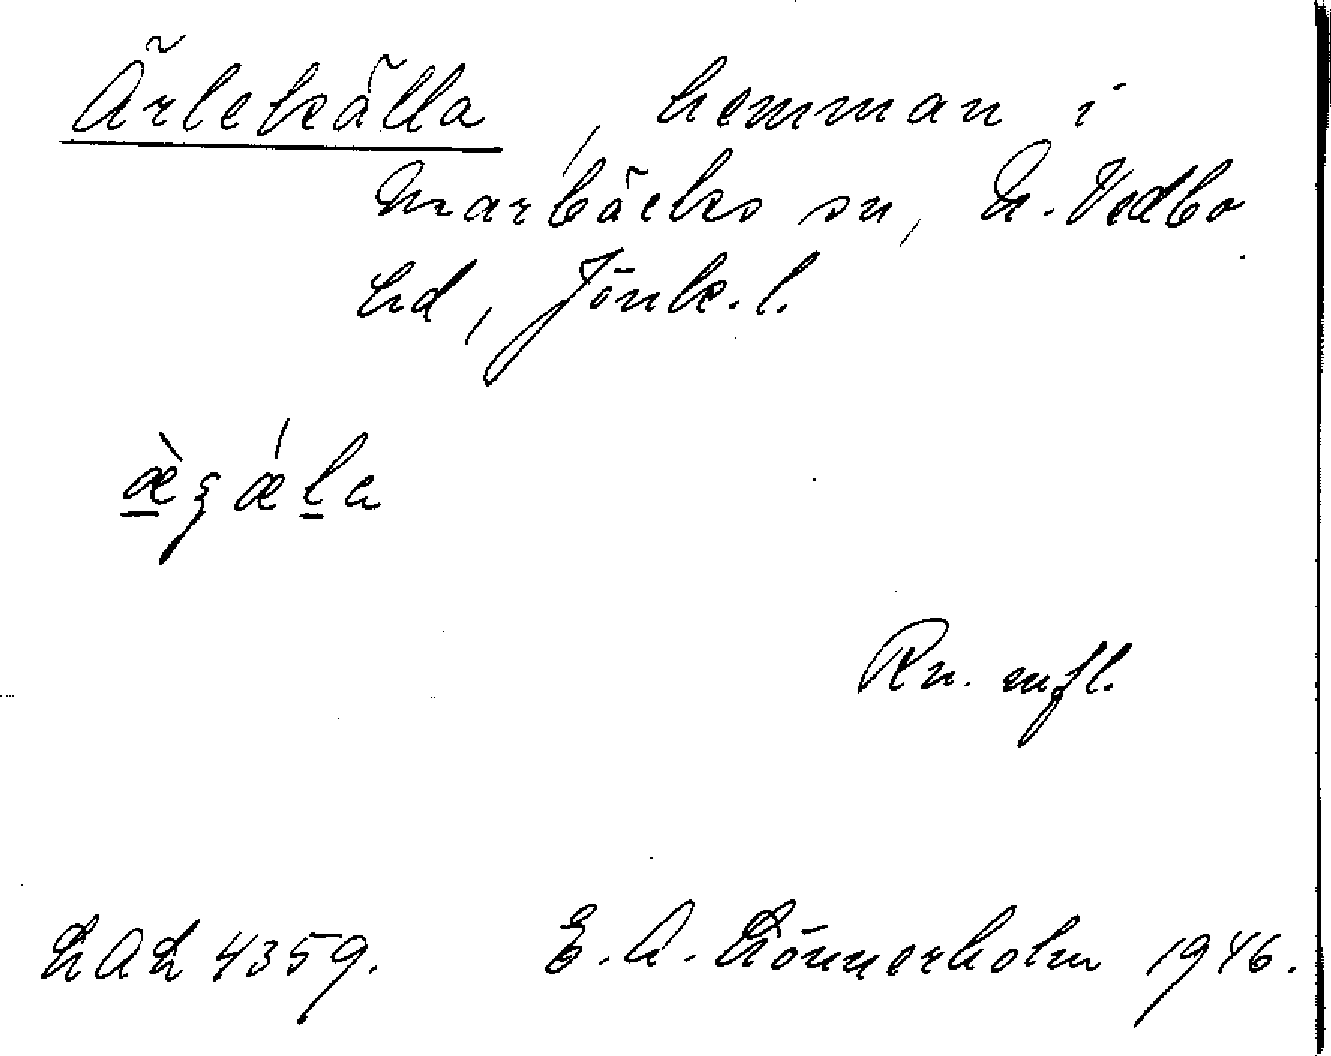 Ärlekälla, hemman i
Marbäcks sn, N. Vedbo
hd, Jönk. l.
Rn. mfl.
LAL 4359. E. A. Lönnerholm 1946.